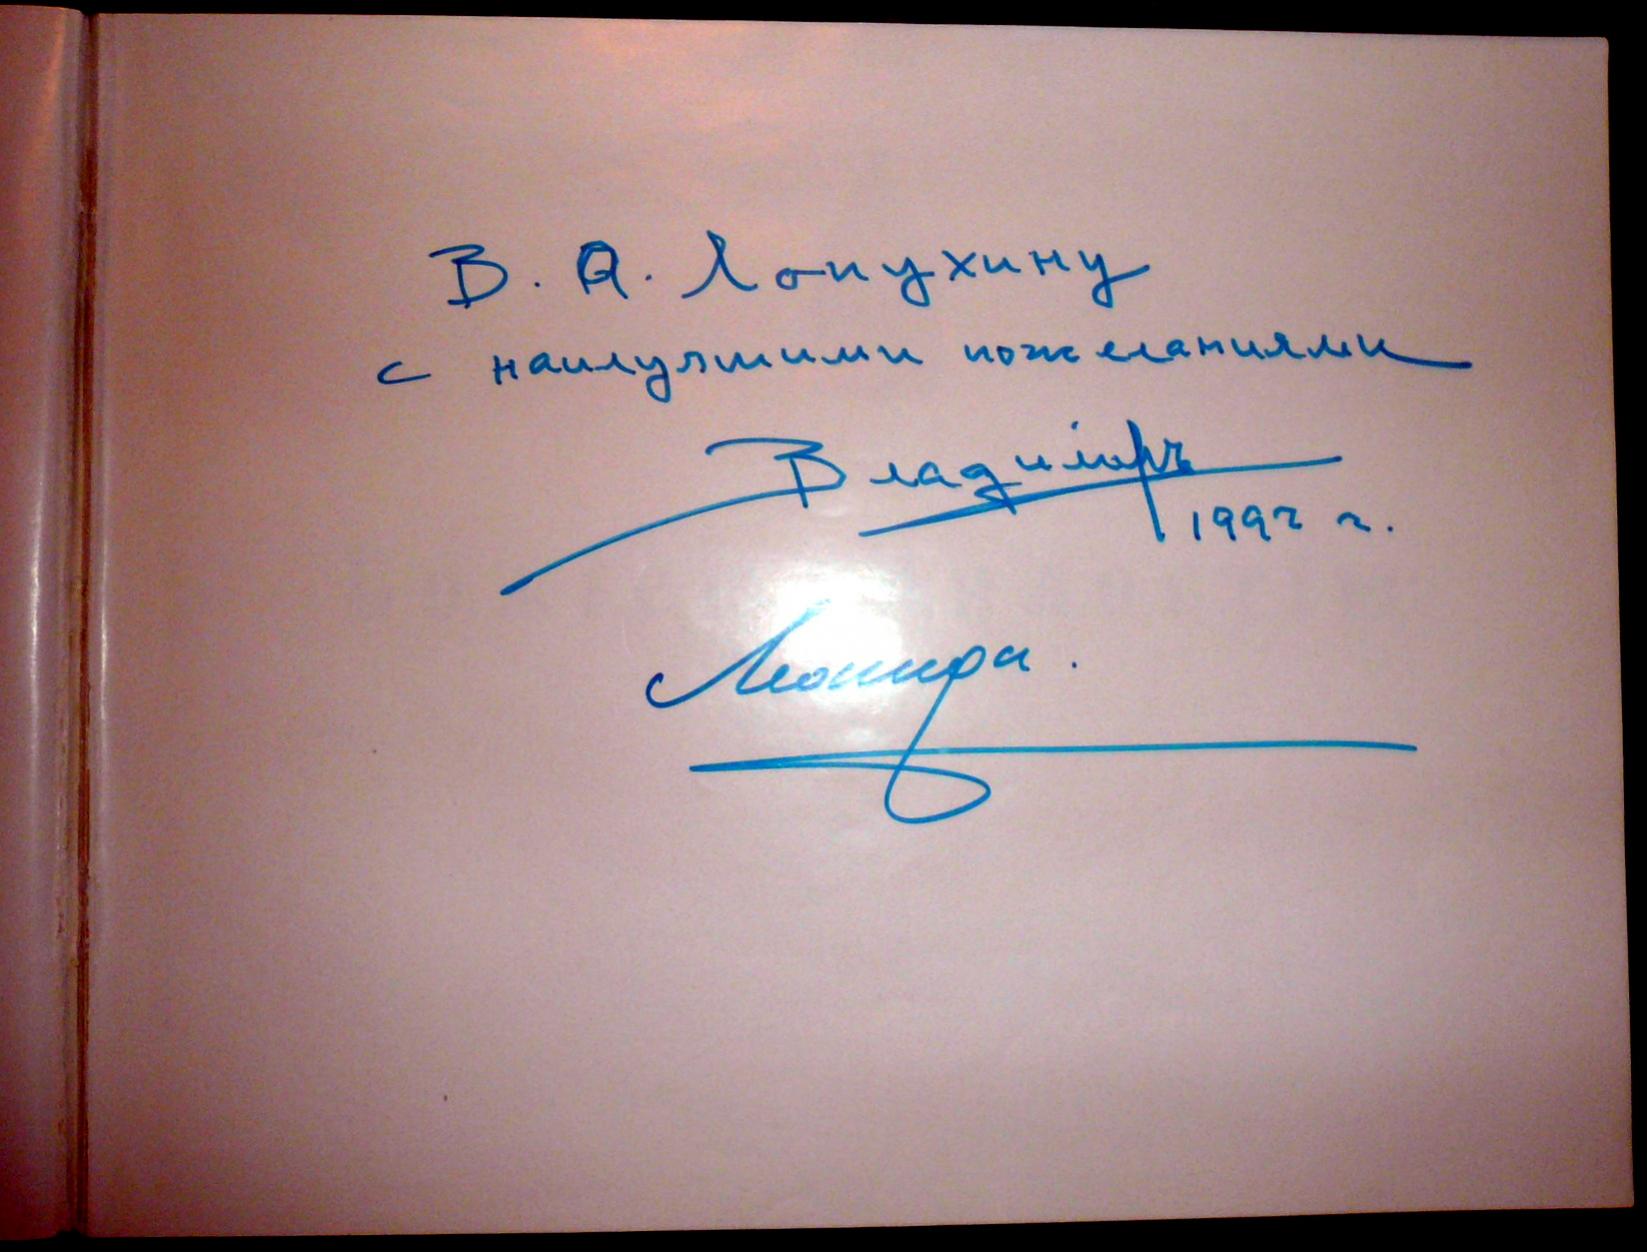 В. А. Лопухину
с наилучшими пожеланиями
Владимiръ
1992 г.
Леонида.